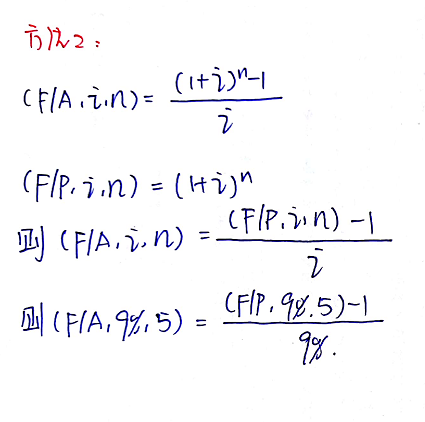 方法2：
(F/A, i, n) = ((1+i)^n-1)/i
(F/P, i, n) = (1+i)^n
则 (F/A, i, n) = ((F/P, i, n) -1)/i
则 (F/A, 9%, 5) = ((F/P, 9%, 5)-1)/9%.